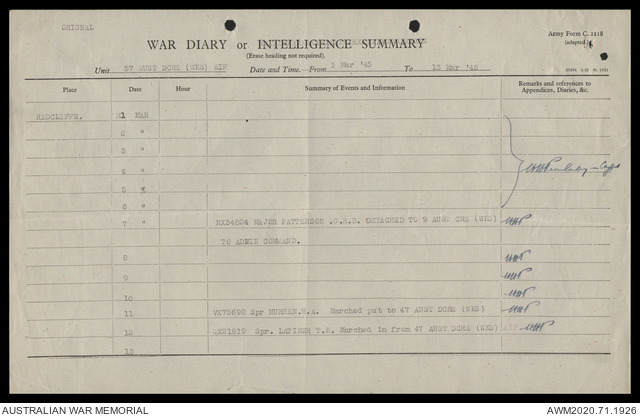 ORIGNAL
Army Form C. 2118
(adapted)
WAR DIARY or INTELLIGENCE SUMMARY
(Erase heading not required).
Unit 57 AUST DCRE (WKS) AIF Date and Time.—From 1 Mar '45 To 13 Mar '45
Place Date Hour Summary of Events and Information Remarks and references to Appendices, Diaries, &c.
REDCLIFFE. 1 MAR
2 "
3 "
4 "
5 "
6 "
7 " NX34824 MAJOR PATTERSON .G.R.B. DETACHED TO 9 AUST CRE (WKS)
TO ADMIN COMMAND.
8
9
10
11 VX75692 Spr H.A. Marched out to 47 AUST DCRE (WKS)
12 QX21819 Spr. LATIMER T.K. Marched in from 47 AUST DCRE (WKS) AIF
13
AUSTRALIAN WAR MEMORIAL AWM2020.71.1926